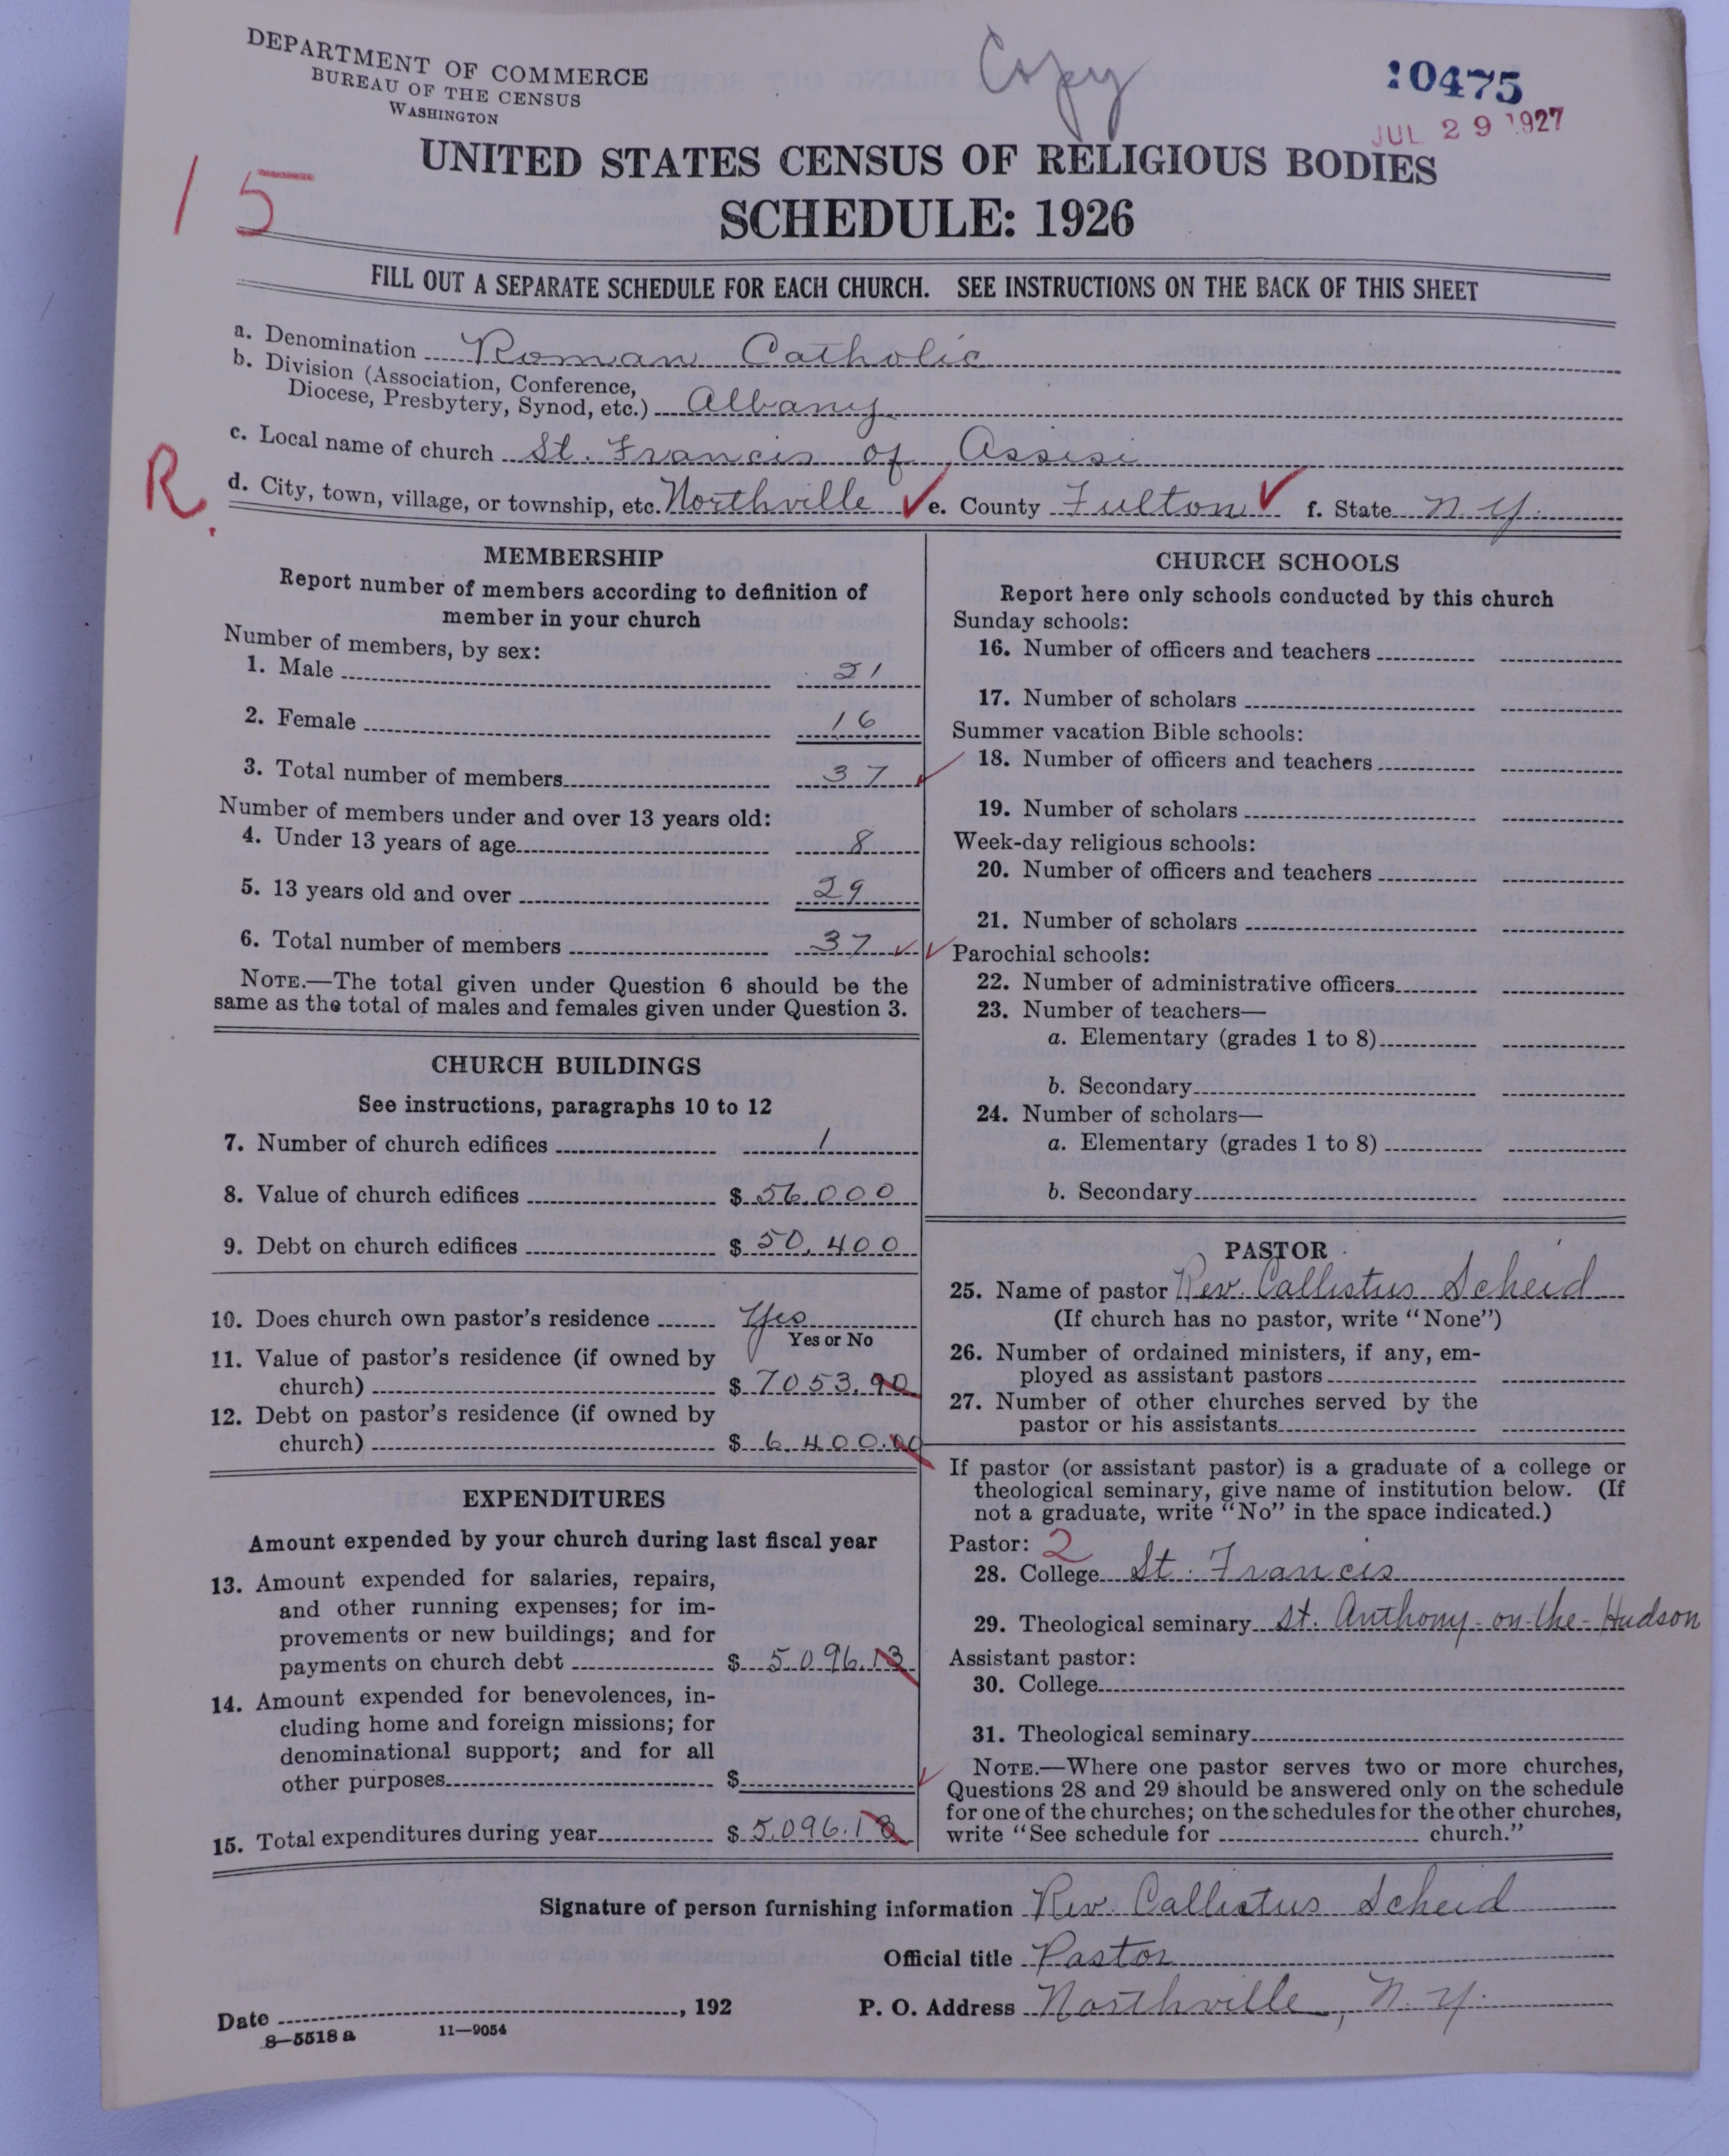 DEPARTMENT OF COMMERCE
BUREAU OF THE CENSUS
WASHINGTON
Copy
10475
JUL 29 1927
15
UNITED STATES CENSUS OF RELIGIOUS BODIES
SCHEDULE: 1926
FILL OUT A SEPARATE SCHEDULE FOR EACH CHURCH. SEE INSTRUCTIONS ON THE BACK OF THIS SHEET
a. Denomination Roman Catholic
b. Division (Association, Conference,
Diocese, Presbytery, Synod, etc.) Albany
c. Local name of church St. Francis of Assisi
R.
d. City, town, village, or township, etc. Northville ✓ e. County Fulton ✓ f. State N.Y.
MEMBERSHIP
Report number of members according to definition of
member in your church
Number of members, by sex:
1. Male 21
2. Female 16
3. Total number of members 37 ✓
Number of members under and over 13 years old:
4. Under 13 years of age 8
5. 13 years old and over 29
6. Total number of members 37 ✓ ✓
NOTE.—The total given under Question 6 should be the
same as the total of males and females given under Question 3.
CHURCH BUILDINGS
See instructions, paragraphs 10 to 12
7. Number of church edifices 1
8. Value of church edifices $ 56,000
9. Debt on church edifices $ 50,400
10. Does church own pastor's residence Yes
Yes or No
11. Value of pastor's residence (if owned by
church) $ 7053.90
12. Debt on pastor's residence (if owned by
church) $ 6,400.00
EXPENDITURES
Amount expended by your church during last fiscal year
13. Amount expended for salaries, repairs,
and other running expenses; for im-
provements or new buildings; and for
payments on church debt $ 5,096.13
14. Amount expended for benevolences, in-
cluding home and foreign missions; for
denominational support; and for all
other purposes $ ✓
15. Total expenditures during year $ 5,096.13
CHURCH SCHOOLS
Report here only schools conducted by this church
Sunday schools:
16. Number of officers and teachers
17. Number of scholars
Summer vacation Bible schools:
18. Number of officers and teachers
19. Number of scholars
Week-day religious schools:
20. Number of officers and teachers
21. Number of scholars
Parochial schools:
22. Number of administrative officers
23. Number of teachers—
a. Elementary (grades 1 to 8)
b. Secondary
24. Number of scholars—
a. Elementary (grades 1 to 8)
b. Secondary
PASTOR
25. Name of pastor Rev. Callistus Scheid
(If church has no pastor, write "None")
26. Number of ordained ministers, if any, em-
ployed as assistant pastors
27. Number of other churches served by the
pastor or his assistants
If pastor (or assistant pastor) is a graduate of a college or
theological seminary, give name of institution below. (If
not a graduate, write "No" in the space indicated.)
Pastor: 2
28. College St. Francis
29. Theological seminary St. Anthony-on-the-Hudson
Assistant pastor:
30. College
31. Theological seminary
NOTE.—Where one pastor serves two or more churches,
Questions 28 and 29 should be answered only on the schedule
for one of the churches; on the schedules for the other churches,
write "See schedule for church."
Signature of person furnishing information Rev. Callistus Scheid
Official title Pastor
Date , 192 P. O. Address Northville, N.Y.
8—5518 a 11—9054